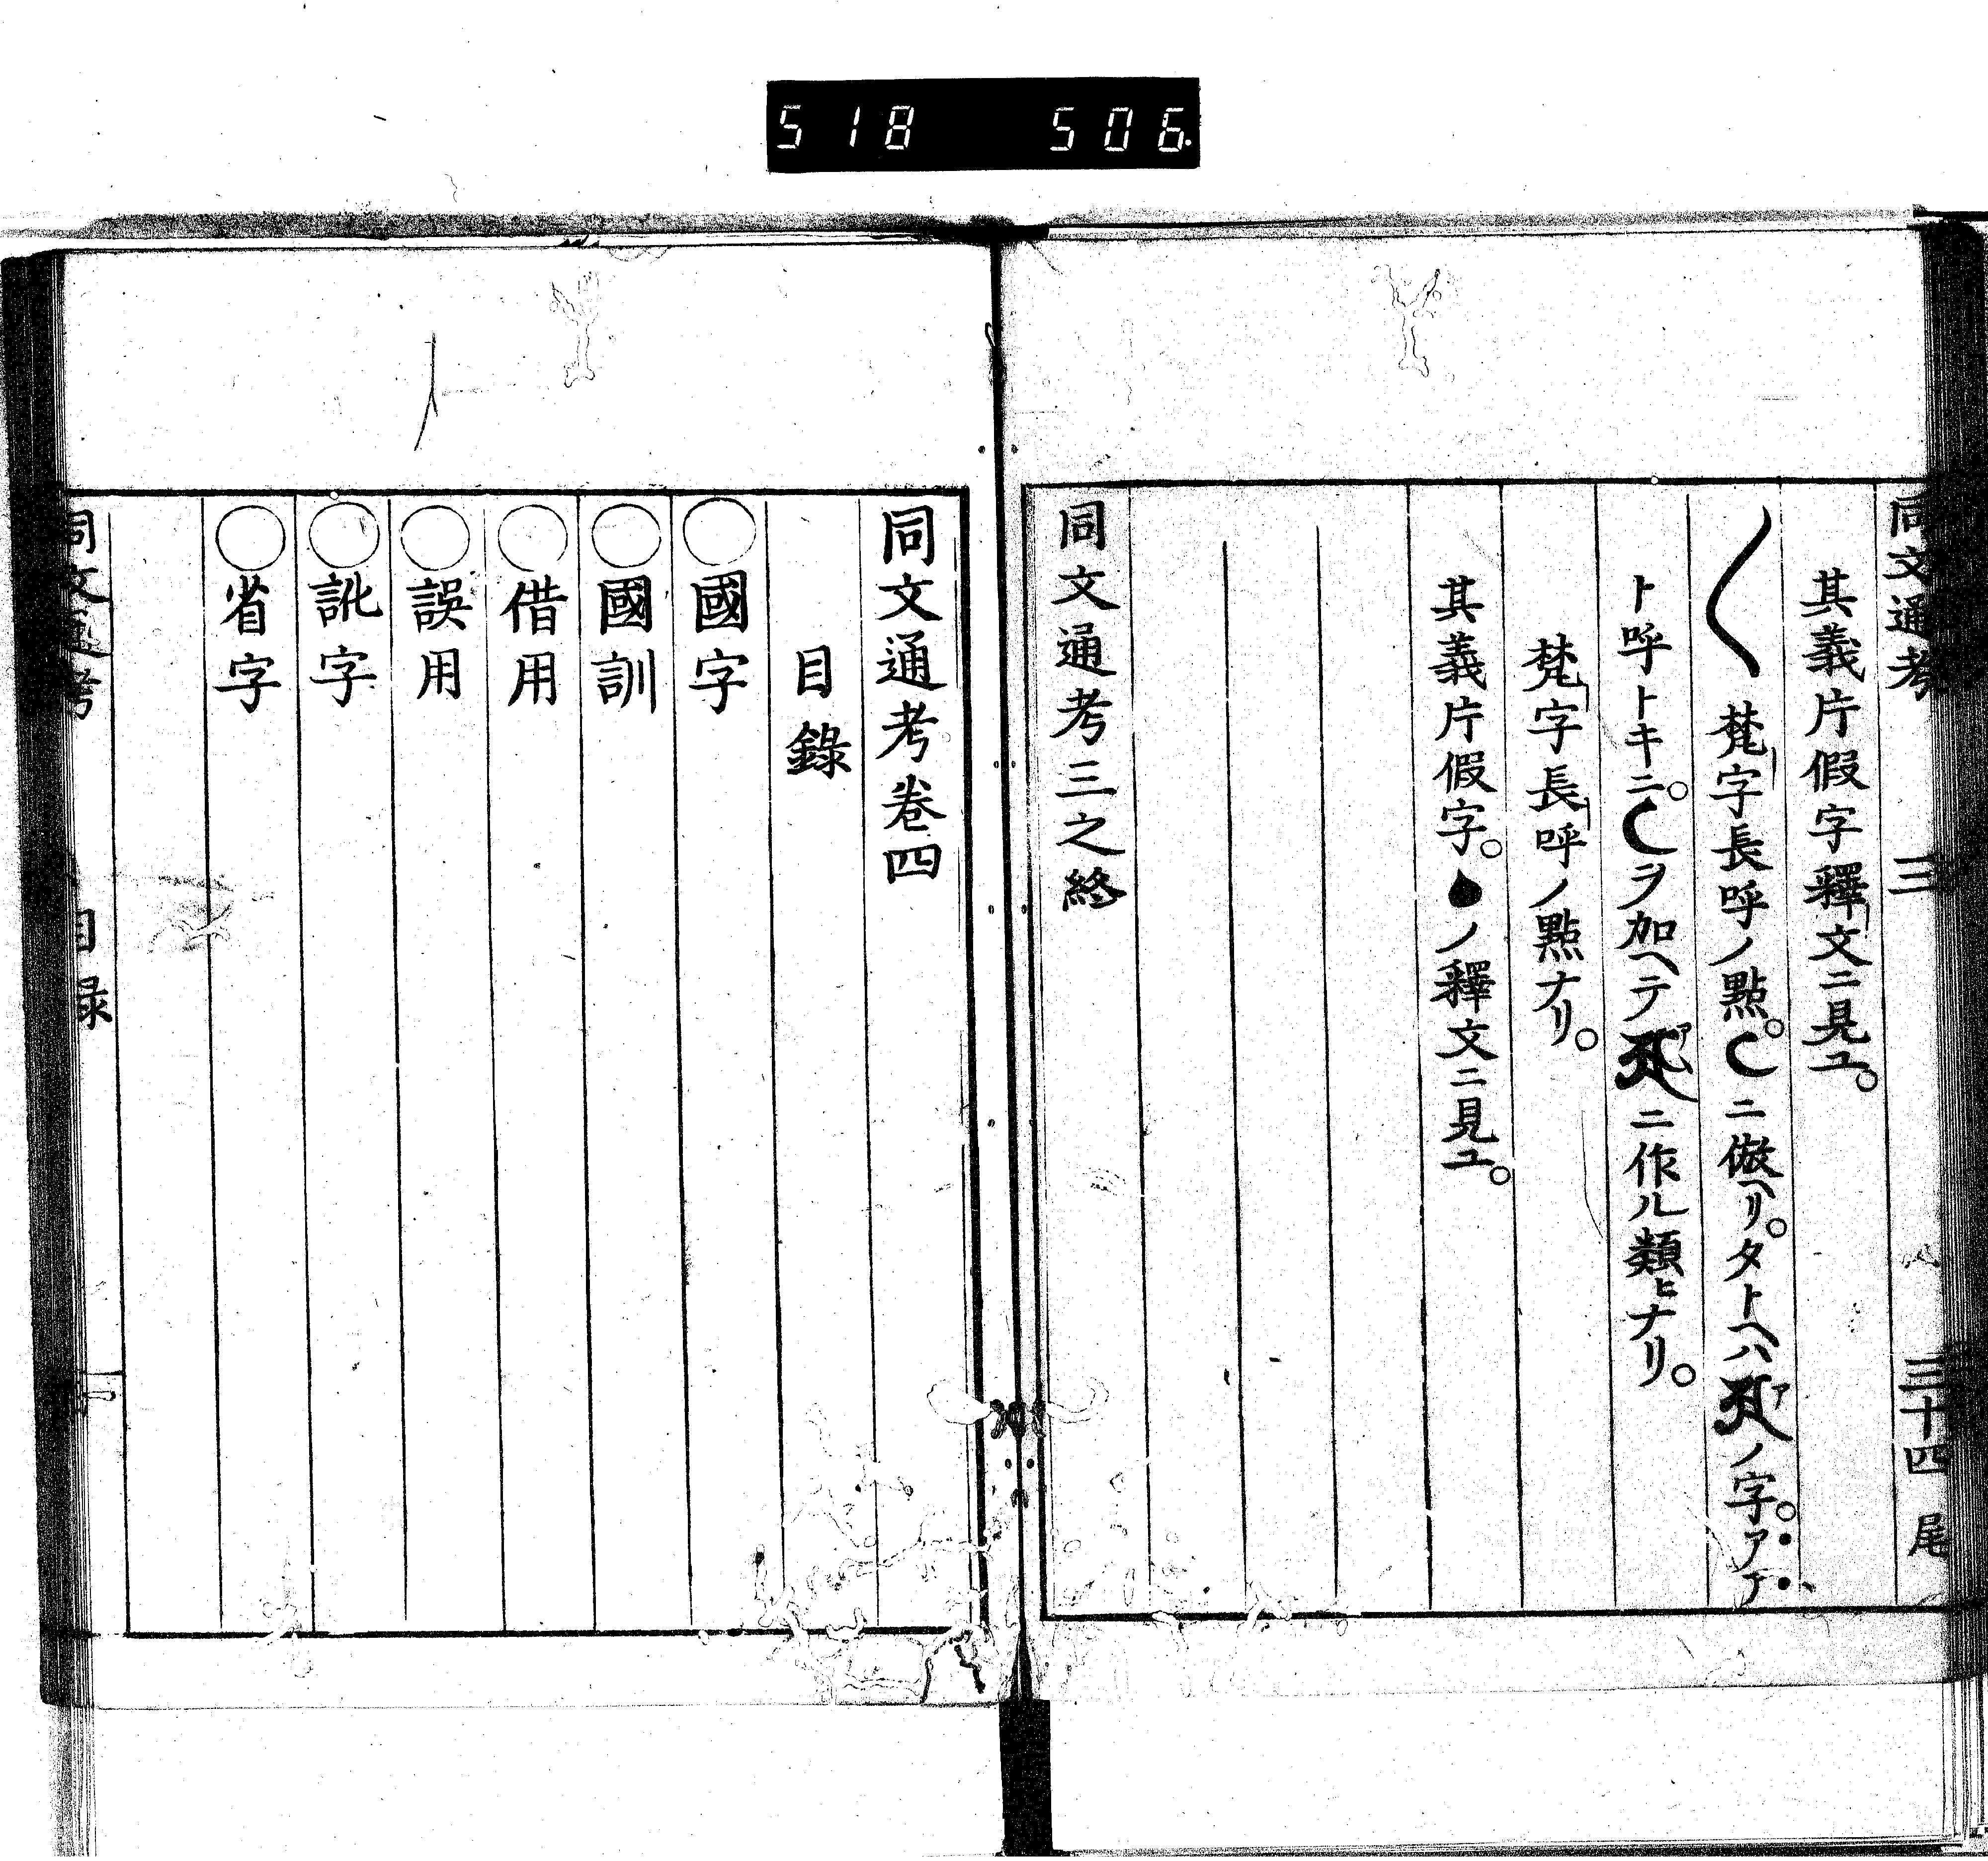 518 506
同文通考 三 三十四 尾
其義片假字釋文ニ見ユ。
〱梵字長呼ノ點。ニ倣ヘリ。タトヘハノ字。アア
ト呼トキニ。ヲ加ヘテニ作ル類ヒナリ。
梵字長呼ノ點ナリ。
其義片假字。ノ釋文ニ見ユ。
同文通考三之終
同文通考卷四
目錄
○國字
○國訓
○借用
○誤用
○訛字
○省字
同文通考 目録